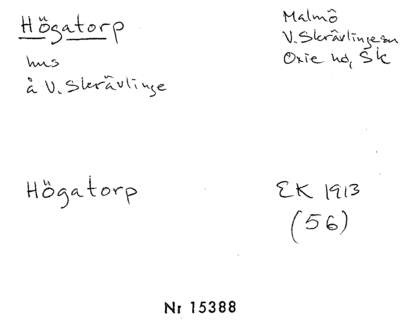 Högatorp
hus
å V. Skrävlinge
Malmö
V. Skrävlinge sn
Oxie hd, Sk
Högatorp
EK 1913
(56)
Nr 15388